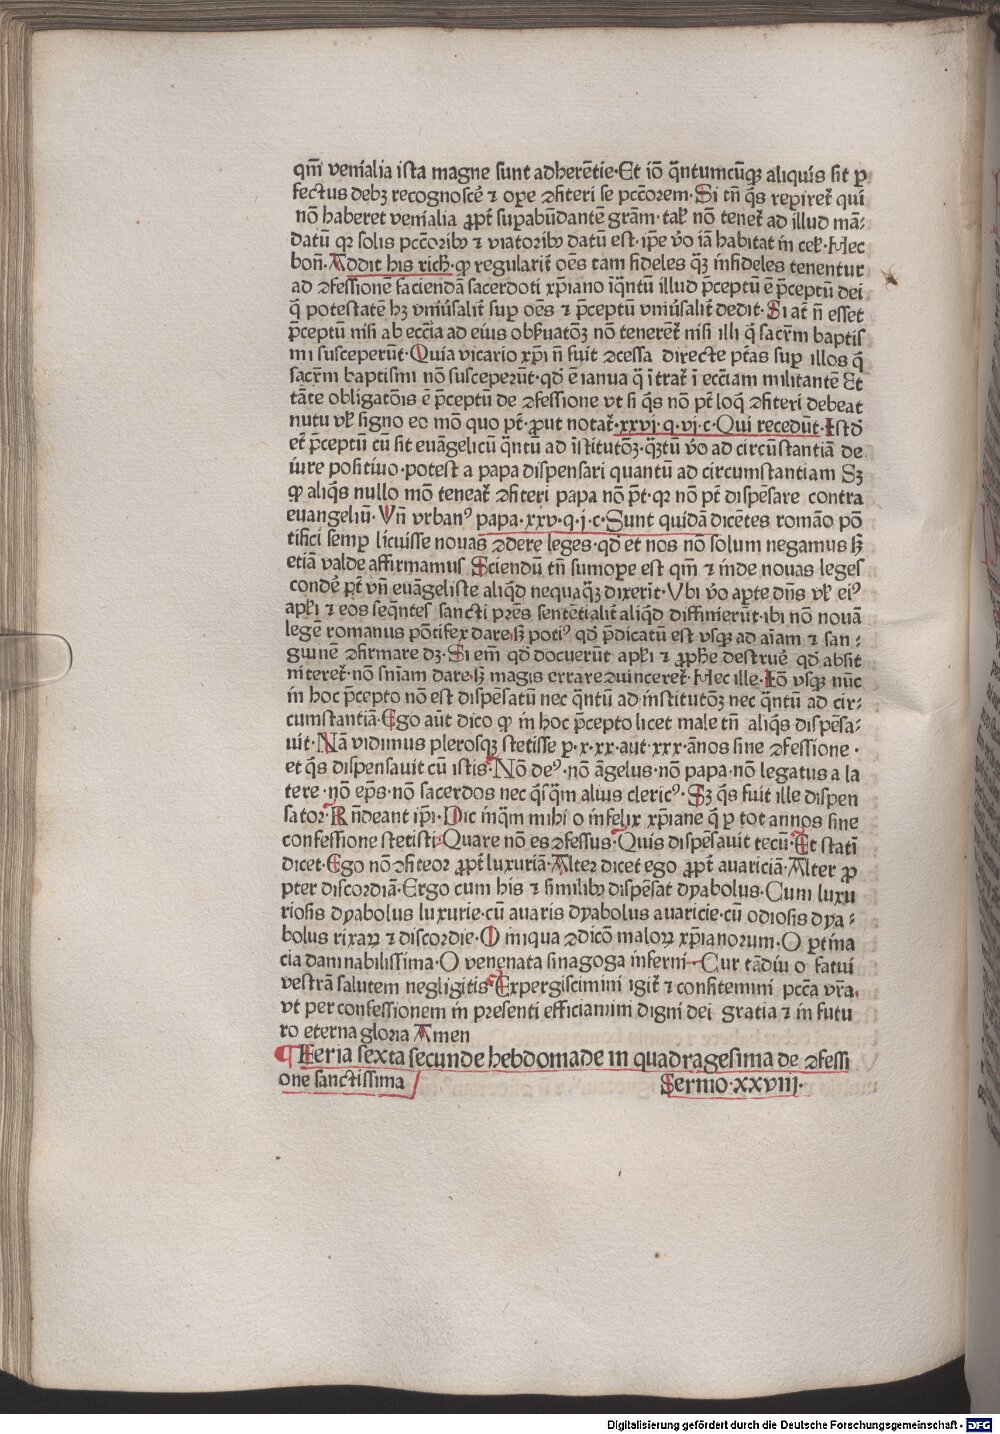 qm̄ venialia ista magne sunt adherētie·Et iō q̄ntumcūqꝫ aliquis sit ꝑ
fectus debꝫ recognoscē ⁊ oꝑe ꝯfiteri se pctōrem·Si tn̄ q̄s reꝑiret᷑ qui
nō haberet venialia ꝓpt̄ suꝑabūdantē grām·tal̄ nō tenet᷑ ad illud mā⸗
datū qꝛ solis pctōribꝰ ⁊ viatoribꝰ datū est·ip̄e v̄o iā habitat in cel̄·Hec
bon̄·Addit his rich̄·ꝙ regularit̄ oēs tam fideles q̄ꝫ infideles tenentur
ad ꝯfessionē faciendā sacerdoti xp̄iano iq̄ntū illud p̄ceptū ē p̄ceptū dei
q̄ potestatē hꝫ vniūsalit̄ suꝑ oēs ⁊ p̄ceptū vniūsalit̄ dedit·Si at̄ n̄ esset
p̄ceptū nisi ab ecc̄ia ad eius obꝫuatōꝫ nō tenerēt᷑ nisi illi q̄ sacr̄m baptis
mi susceperūt·Quia vicario xp̄i n̄ fuit ꝯcessa directe pt̄as suꝑ illos q̄
sacr̄m baptismi nō susceperūt·qd̄ ē ianua q̄ ītrat᷑ ī ecc̄iam militantē Et
tāte obligatōis ē p̄ceptū de ꝯfessione vt si q̄s nō pt̄ loq̄ ꝯfiteri debeat
nutu vl̄ signo eo mō quo pt̄·ꝓut notat᷑·xxvj·q·vj·c·Qui recedūt·Istd̄
et᷑ p̄ceptū cū sit euāgelicū q̄ntū ad īstitutōꝫ·q̄ꝫtū v̄o ad circūstantiā de
iure positiuo·potest a papa dispensari quantū ad circumstantiam Sꝫ
ꝙ aliq̄s nullo mō teneat᷑ ꝯfiteri papa nō p̄t·qꝛ nō pt̄ dispēsare contra
euangeliū·Vn̄ vrbanꝰ papa·xxv·q·j·c·Sunt quidā dicētes romāo pō
tifici semꝑ licuisse nouas ꝯdere leges·qd̄ et nos nō solum negamus sꝫ
etiā valde affirmamus Sciendū tn̄ sumoꝑe est qm̄ ⁊ inde nouas leges
condē pt̄ vn̄ euāgeliste aliq̄d nequaq̄ꝫ dixerīt·Vbi v̄o aꝑte dn̄s vl̄ eiꝰ
apl̄i ⁊ eos seq̄ntes sancti pr̄es sentētialit̄ aliq̄d diffinierūt·ibi nō nouā
legē romanus pōtifex dare·sꝫ potiꝰ qd̄ p̄dicatū est vsqꝫ ad aīam ⁊ san⸗
guinē ꝯfirmare dꝫ·Si em̄ qd̄ docuerūt apl̄i ⁊ ꝓph̄e destruē qd̄ absit
niteret᷑·nō sn̄iam dare·sꝫ magis errare ꝯuinceret᷑·Hec ille·Iō vsqꝫ nūc
in hoc p̄cepto nō est dispēsatū nec q̄ntū ad institutōꝫ nec q̄ntū ad cir⸗
cumstantiā·Ego aūt dico ꝙ in hoc p̄cepto licet male tn̄ aliq̄s dispēsa⸗
uit·Nā vidimus plerosqꝫ stetisse ꝑ·x·xx·aut·xxx·ānos sine ꝯfessione·
et q̄s dispensauit cū istis·Nō deꝰ·nō āgelus·nō papa·nō legatus a la
tere·nō ep̄s·nō sacerdos nec q̄sq̄m alius clericꝰ·Sꝫ q̄s fuit ille dispen
sator·Rn̄deant ip̄i·Dic inq̄m mihi o infelix xp̄iane q̄ ꝑ tot annos sine
confessione stetisti·Quare nō es ꝯfessus·Quis dispēsauit tecū·Et statī
dicet·Ego nō ꝯfiteor ꝓpt̄ luxuriā·Alter dicet ego ꝓpt̄ avariciā·Alter ꝓ
pter discordiā·Ergo cum his ⁊ similibꝰ dispēsat dyabolus·Cum luxu
riosis dyabolus luxurie·cū avaris dyabolus avaricie·cū odiosis dya⸗
bolus rixaꝝ ⁊ discordie·O iniqua ꝯdicō maloꝝ xp̄ianorum·O ꝑtina
cia damnabilissima·O venenata sinagoga inferni·Cur tādiu o fatui
vestrā salutem negligitis·Expergiscimini igit᷑ ⁊ confitemini pccā vr̄a·
vt per confessionem in presenti efficiamini digni dei gratia ⁊ in futu
ro eterna gloria Amen
¶Feria sexta secunde hebdomade in quadragesima de ꝯfessi
one sanctissima Sermo·xxviij·
Digitalisierung gefördert durch die Deutsche Forschungsgemeinschaft - DFG